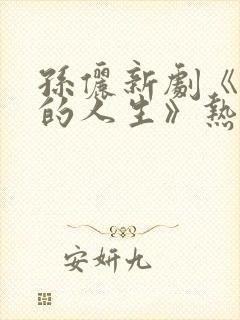 孫儷新劇《
的人生》熱
安妍九